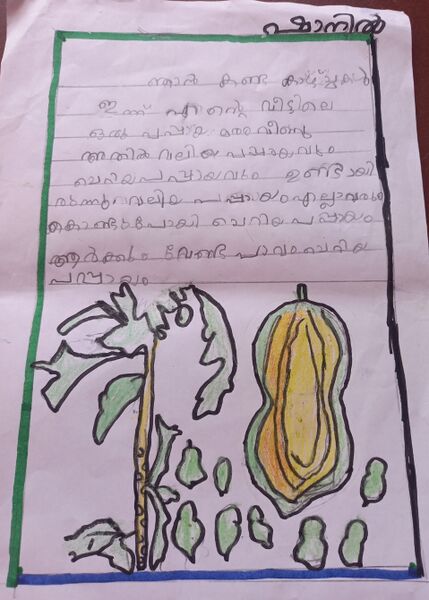 ഷാനിൽ
ഞാൻ കണ്ട കാഴ്ച്ചകൾ
ഇന്ന് എന്റെ വീട്ടിലെ
ഒരു പപ്പായ മരം വീണു
അതിൽ വലിയ പപ്പായവും
ചെറിയ പപ്പായവും ഉണ്ടായി
രുന്നു വലിയ പപ്പായം എല്ലാവരും
കൊണ്ടുപോയി ചെറിയ പപ്പായം
ആർക്കും വേണ്ട പാവം ചെറിയ
പപ്പായം